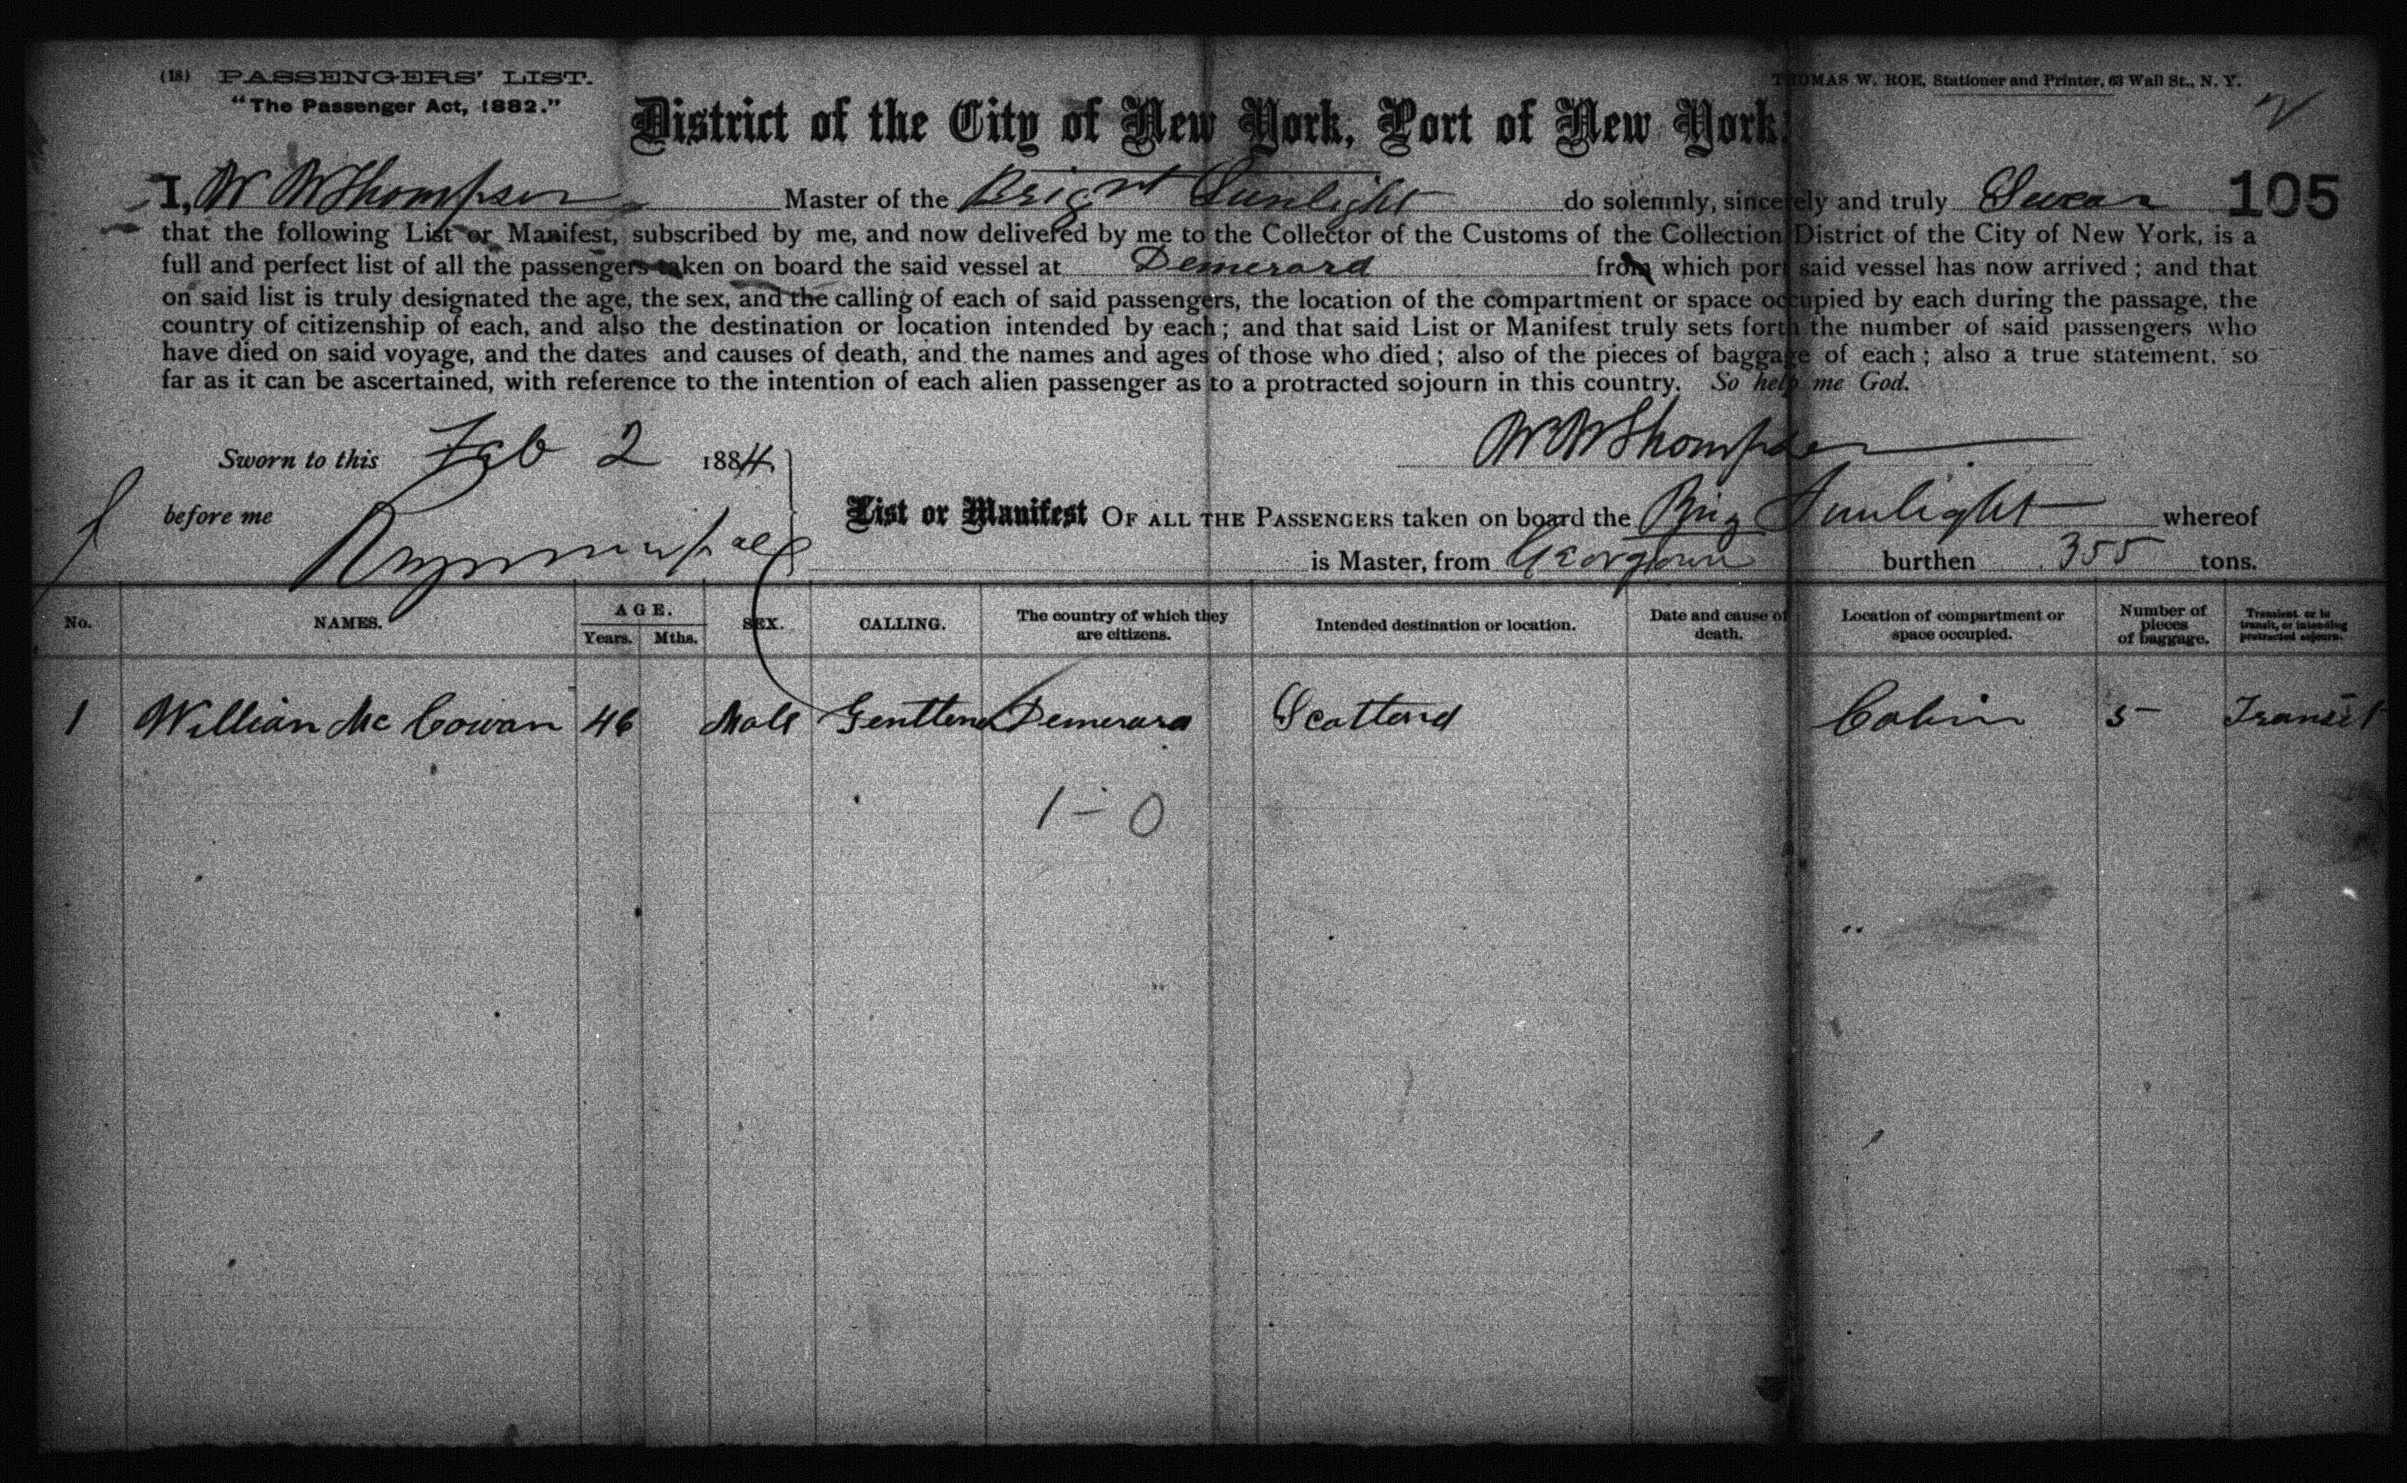 (18) PASSENGERS' LIST. THOMAS W. ROE, Stationer and Printer, 63 Wall St., N. Y.
"The Passenger Act, 1882."
District of the City of New York, Port of New York.
I, W W Thompson Master of the Brignt Sunlight do solemnly, sincerely and truly Swear 105
that the following List or Manifest, subscribed by me, and now delivered by me to the Collector of the Customs of the Collection District of the City of New York, is a
full and perfect list of all the passengers taken on board the said vessel at Demerara from which port said vessel has now arrived; and that
on said list is truly designated the age, the sex, and the calling of each of said passengers, the location of the compartment or space occupied by each during the passage, the
country of citizenship of each, and also the destination or location intended by each; and that said List or Manifest truly sets forth the number of said passengers who
have died on said voyage, and the dates and causes of death, and the names and ages of those who died; also of the pieces of baggage of each; also a true statement, so
far as it can be ascertained, with reference to the intention of each alien passenger as to a protracted sojourn in this country. So help me God.
W W Thompson
Sworn to this Feb 2 1884
before me
List or Manifest OF ALL THE PASSENGERS taken on board the Brig Sunlight whereof
is Master, from Georgtown burthen 355 tons.
No. NAMES. AGE. Years. Mths. SEX. CALLING. The country of which they are citizens. Intended destination or location. Date and cause of death. Location of compartment or space occupied. Number of pieces of baggage. Transient or in transit, or intending protracted sojourn.
1 William Mc Cowan 46 Male Gentlem Demerara Scotland Cabin 5 Transit
1 - 0